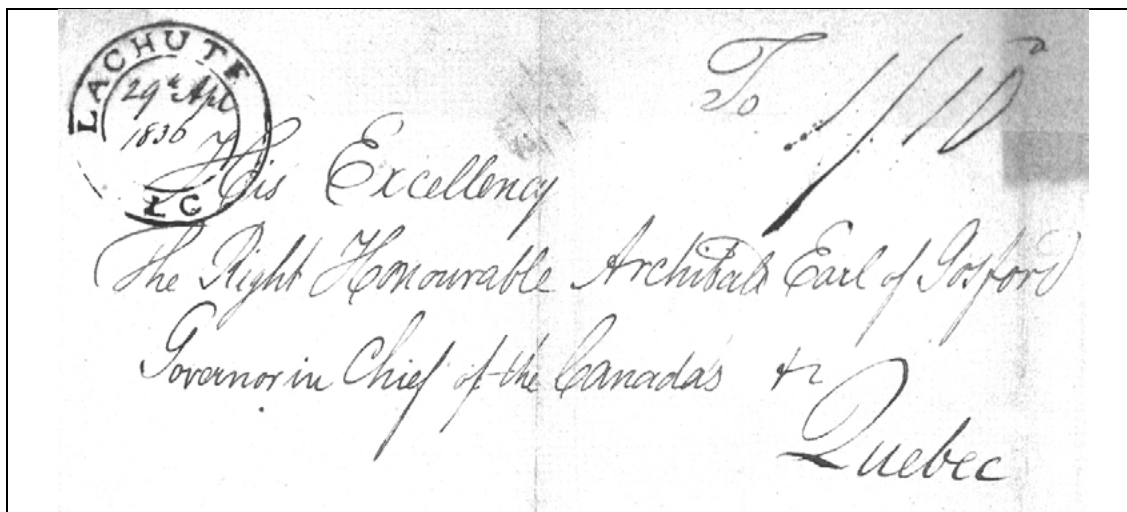 LACHUTE
29th Apl
1836
L C
To
1/10
His Excellency
The Right Honourable Archibald Earl of Gosford
Governor in Chief of the Canada's &c
Quebec